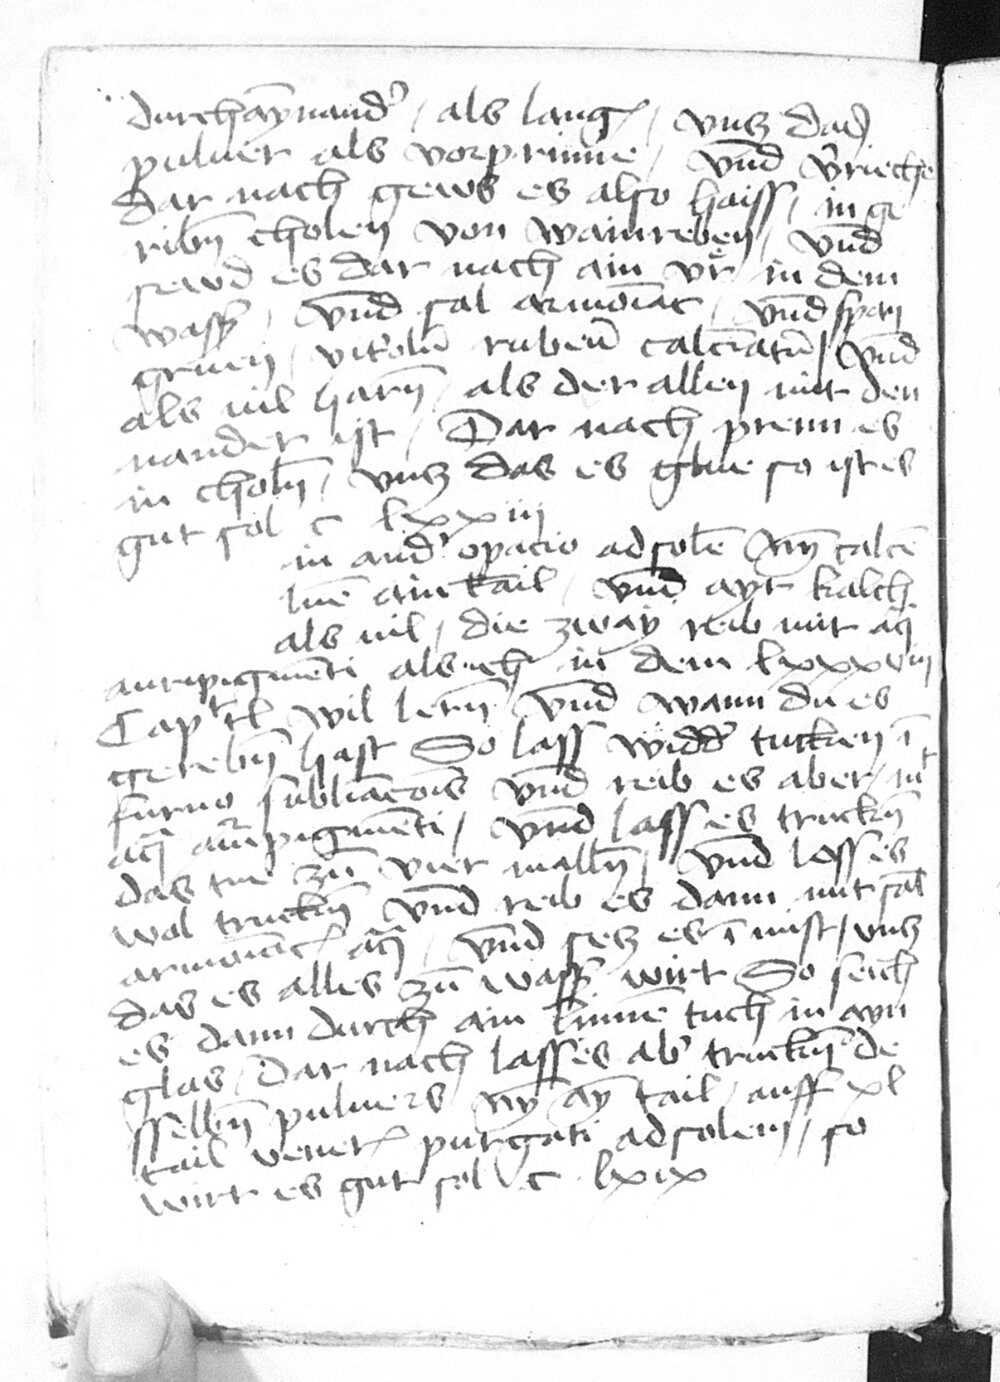 durchaÿnand' / als lang / vncz das
puluer als vorprinne / vnd v'rieche
Dar nach gews es also haiss / in ge
ribn̄ cholen von wainreben / vnd
sewd es dar nach ain vr̄ in dem
wass' / vnd sal armoīac / vnd spen
gruen / vit'olū rubeū calcīatū / vnd
als uil harn̄ / als der allen mit den
nander ist / Dar nach prenn es
in choln̄ / vncz das es glue so ist es
gut sol c lxxiij
in and' opacio ad solē Nȳ calcē
lūe ain tail / vnd ayr kalch
als uil / die zway reib mit aq̄
auripigmēti als ich in dem lxxxviij
Capt'l wil lern̄ vnd wann du es
gerebn̄ hast So lass widd' tucken ī
furno sublīacōis vnd reib es aber mit
aq̄ aur̄pigmēti / vnd lass es truckn̄
das tue zū vier malln̄ / vnd loss es
wol truckn̄ vnd reib es dann mit sal
armoīac aq̄ / vnd secz es ī mist / vncz
das es alles zū wass' wirt So seich
es dann durch ain linnē tuch in ayn
glas / Dar nach lass es ab' truckn̄ de
sselbn̄ puluers Nȳ aȳ tail / auff xl
tail vener' purgati ad solem / so
wirt es gut sol c lxix